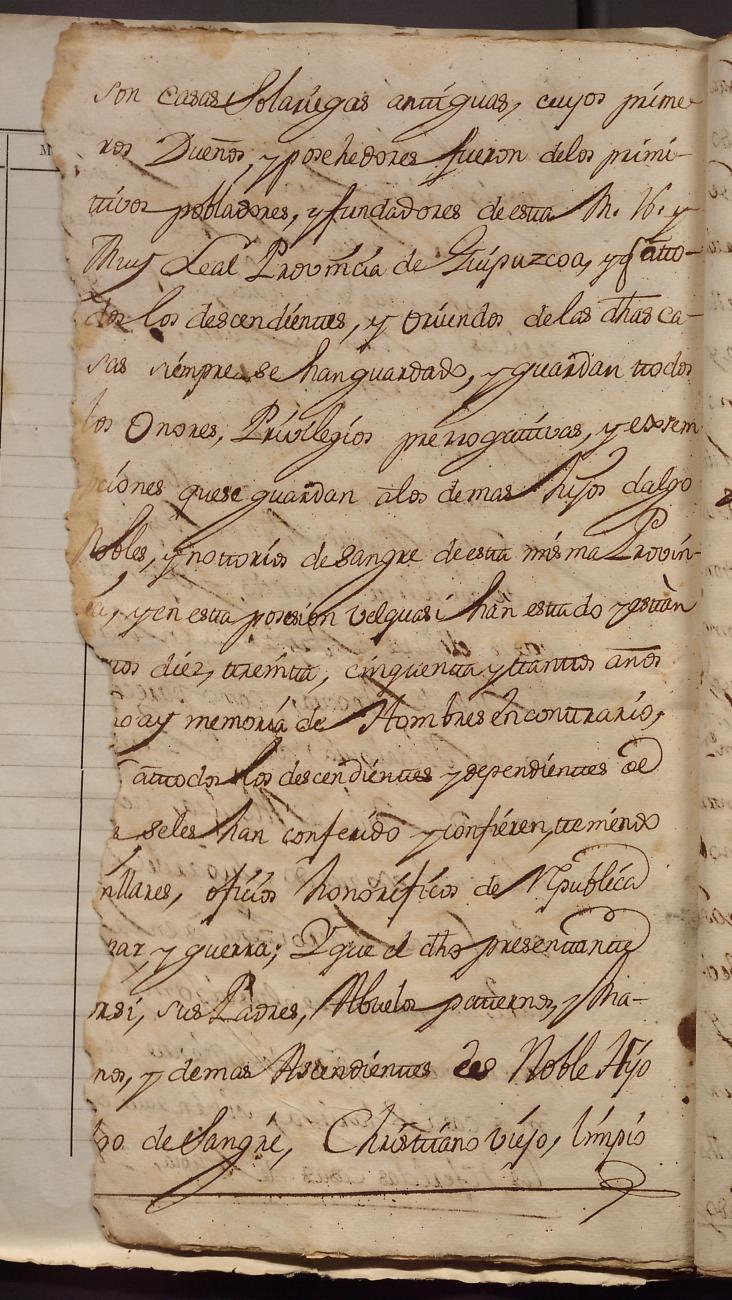 son casas Solariegas antiguas, cuyos prime-
ros Dueños, y posehedores fueron delos primi-
tivos pobladores, y fundadores de esta M. N. y
Muy Leal Provincia de Guipuzcoa, y q̃ atto-
dos los descendientes, y oriundos de las dhas ca-
sas siempre se han guardado, y guardan ttodos
los Onores, Privilegios prerrogativas, y exsem
pciones quese guardan alos demas hijos dalgo
Nobles, y nottorios de sangre de esta misma Provin-
cia, y en esta posesion velquasi han estado y están
diez, treinta, cinquenta y tantos años
no ay memoria de Hombres en contrario,
attodos los descendientes y dependientes de
seles han conferido y confieren, tteniendo
millares, oficios honorificos de Republica
paz, y guerra; Y que el dho presentante
porsi, sus Padres, Abuelos paternos, y Ma-
nos, y demas Ascendientes es Noble Hijo
de Sangre, Christiano viejo, limpio